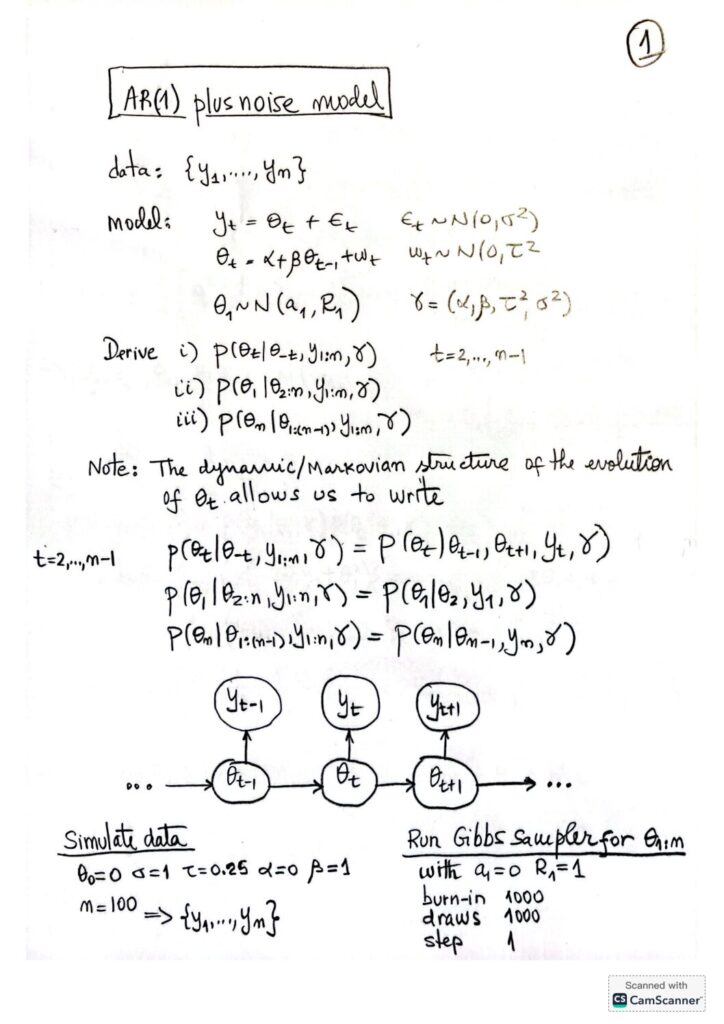 1
AR(1) plus noise model
data: {y1,...., yn}
model: yt = θt + εt   εt ~ N(0,σ²)
θt = α+βθt-1+ωt   ωt ~ N(0,τ²
θ1 ~ N(a1, R1)   γ=(α,β,τ²,σ²)
Derive i) p(θt|θ-t, y1:n, γ)   t=2,...,n-1
ii) p(θ1|θ2:n, y1:n, γ)
iii) p(θn|θ1:(n-1), y1:n, γ)
Note: The dynamic/Markovian structure of the evolution
of θt allows us to write
t=2,...,n-1   p(θt|θ-t, y1:n, γ) = p(θt|θt-1, θt+1, yt, γ)
p(θ1|θ2:n, y1:n, γ) = p(θ1|θ2, y1, γ)
p(θn|θ1:(n-1), y1:n, γ) = p(θn|θn-1, yn, γ)
yt-1   yt   yt+1
...   θt-1   θt   θt+1   ...
Simulate data
θ0=0 σ=1 τ=0.25 α=0 β=1
n=100 => {y1,...,yn}
Run Gibbs sampler for θ1:n
with a1=0 R1=1
burn-in 1000
draws 1000
step 1
Scanned with
CS CamScanner